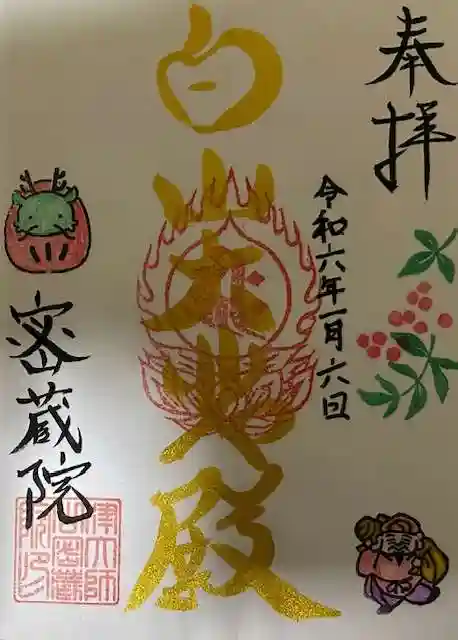 奉拝
令和六年一月六日
白山大火殿
密蔵院